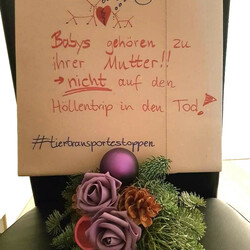 Babys gehören zu
ihrer Mutter!!
→ nicht auf den
Höllentrip in den Tod!
#tiertransportestoppen